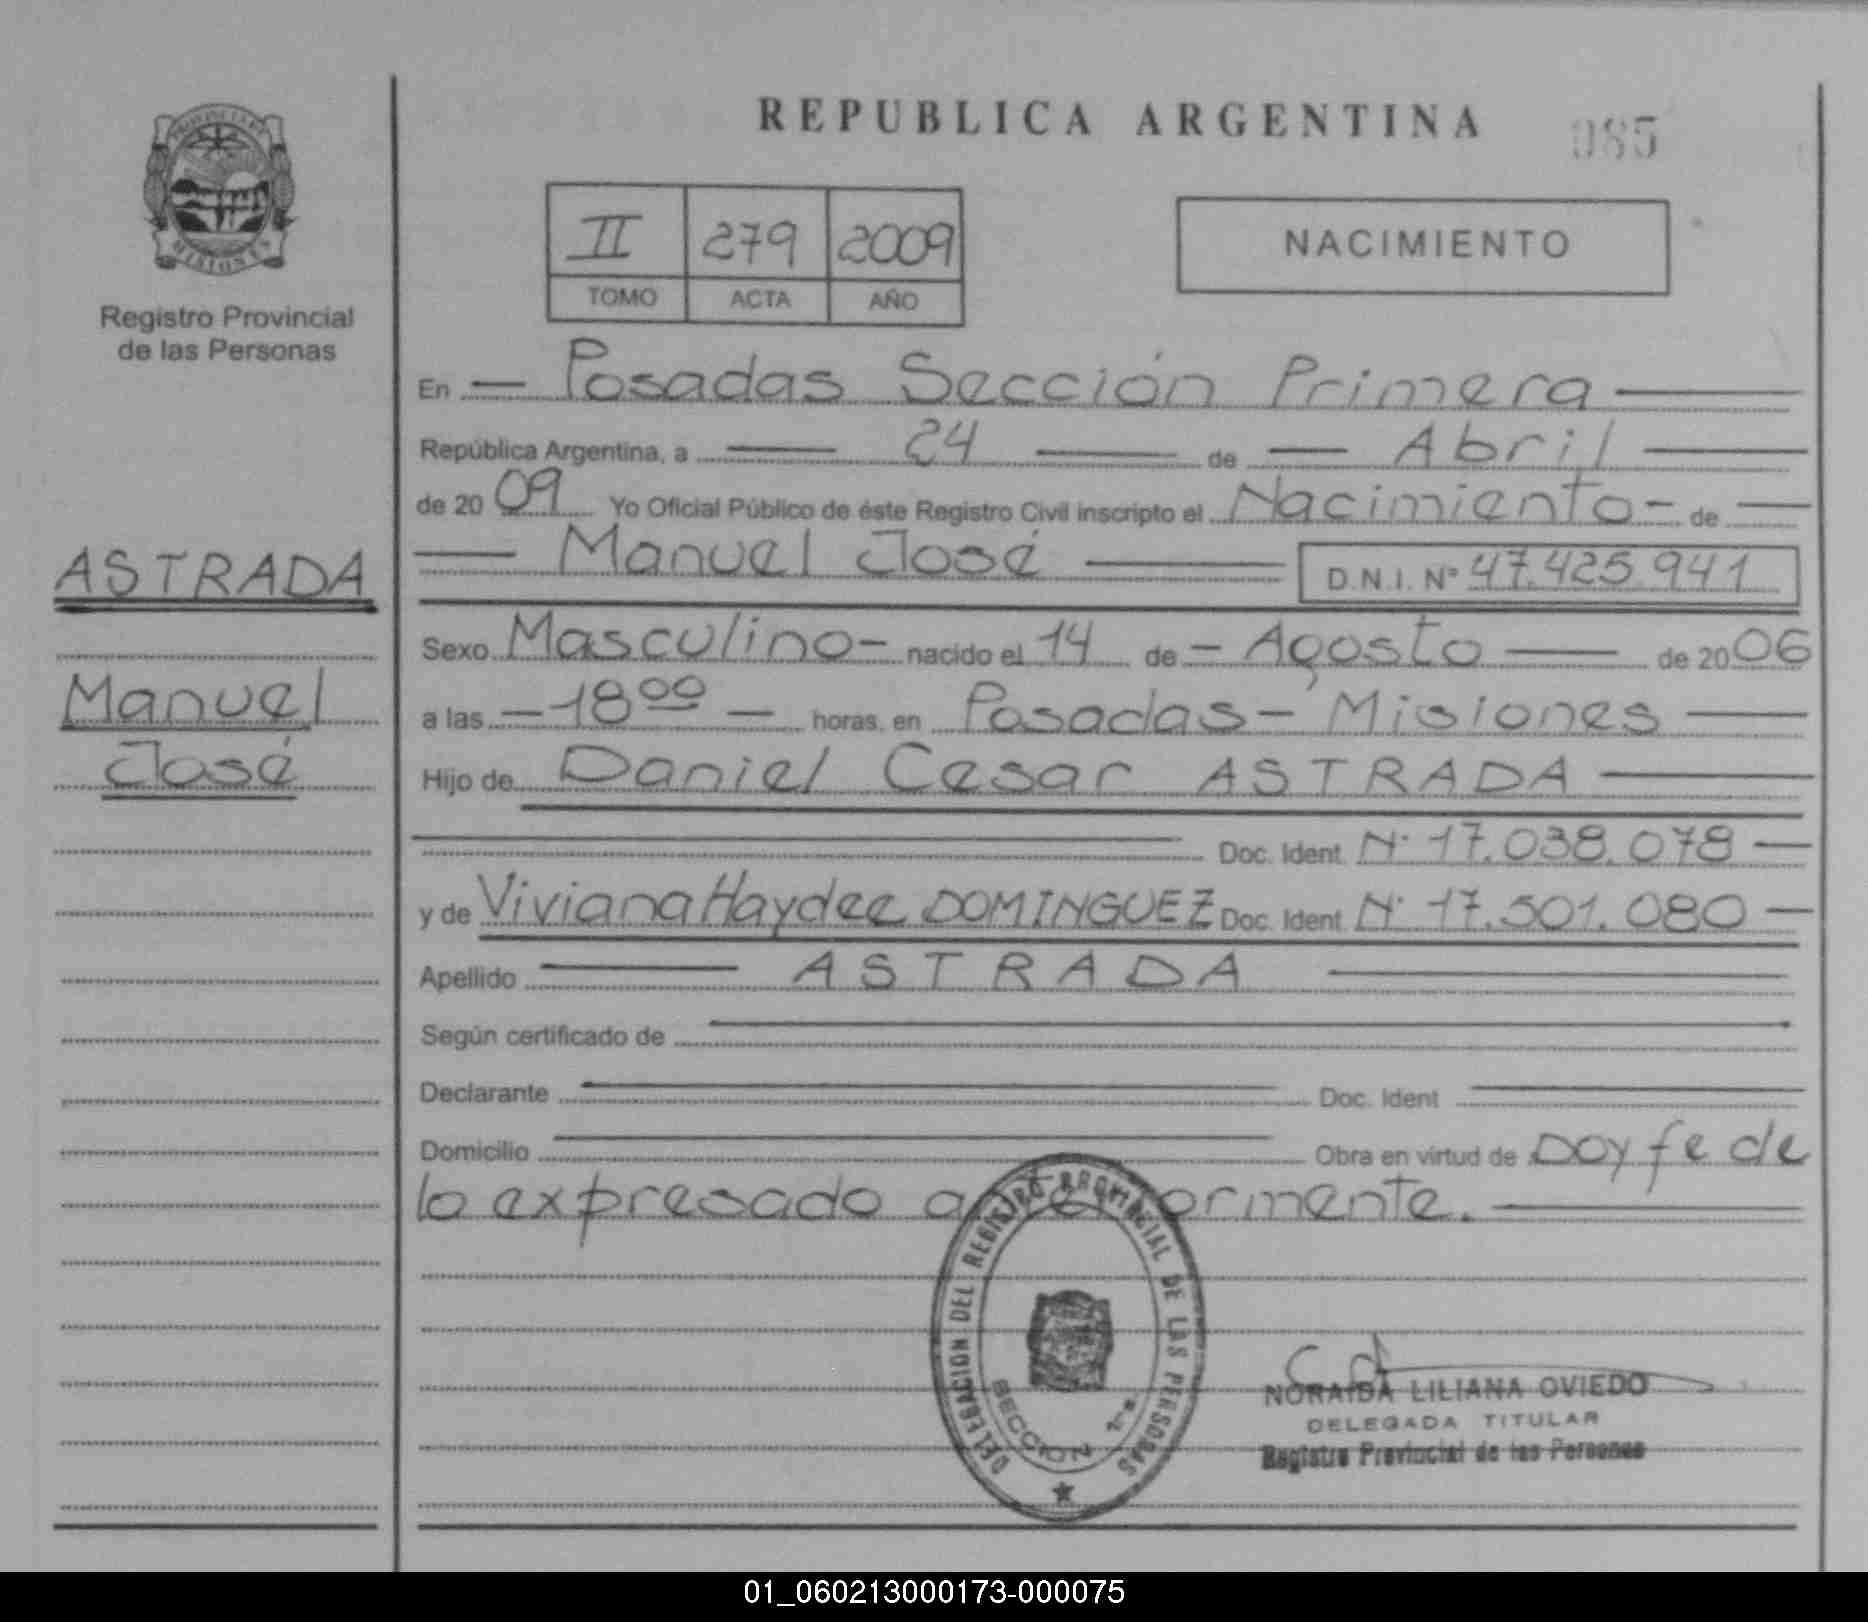 REPUBLICA ARGENTINA
085
PROVINCIA DE
MISIONES
Registro Provincial
de las Personas
II 279 2009
TOMO ACTA AÑO
NACIMIENTO
En Posadas Sección Primera
República Argentina, a 24 de Abril
de 2009 Yo Oficial Público de éste Registro Civil inscripto el Nacimiento - de
Manuel José D.N.I. Nº 47.425.941
ASTRADA
Manuel
José
Sexo Masculino - nacido el 14 de - Agosto de 2006
a las - 18 00 - horas, en Posadas - Misiones
Hijo de Daniel Cesar ASTRADA
Doc. Ident. Nº 17.038.078
y de Viviana Haydee DOMINGUEZ Doc. Ident. Nº 17.501.080
Apellido ASTRADA
Según certificado de
Declarante Doc. Ident
Domicilio Obra en virtud de Doy fe de
lo expresado anteriormente.
DELEGACION DEL REGISTRO PROVINCIAL DE LAS PERSONAS
SECCION 1ra.
NORAIDA LILIANA OVIEDO
DELEGADA TITULAR
Registro Provincial de las Personas
01_060213000173-000075